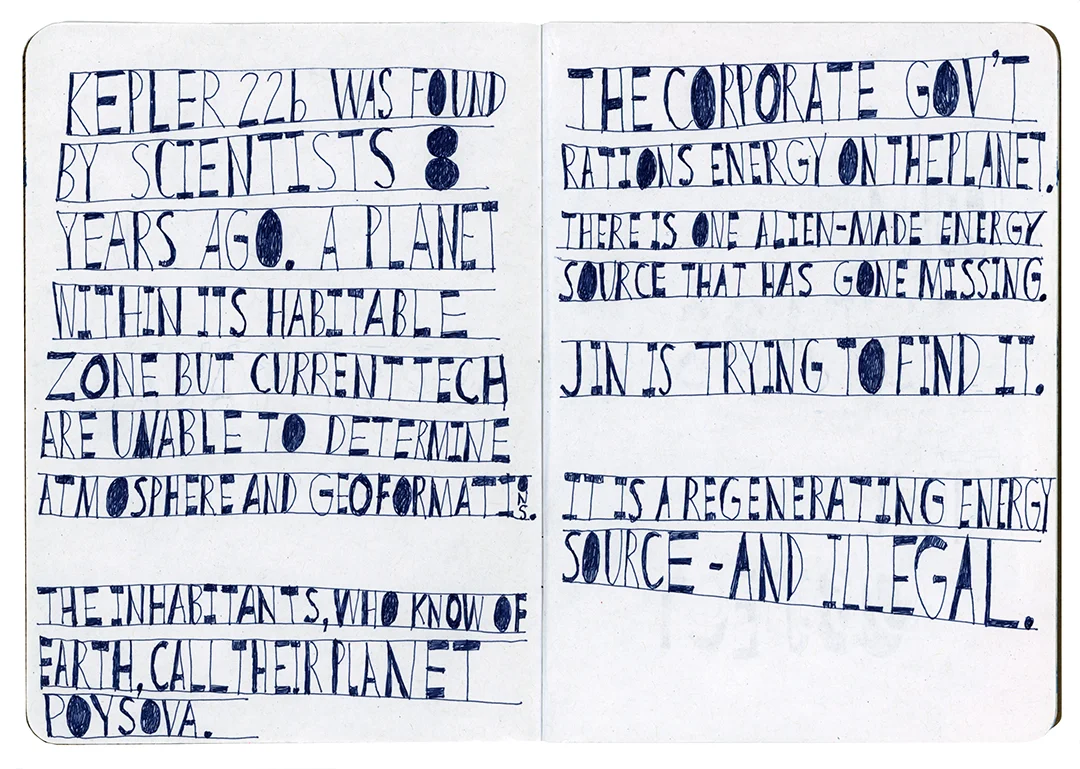 KEPLER 22b WAS FOUND
BY SCIENTISTS 8
YEARS AGO. A PLANET
WITHIN ITS HABITABLE
ZONE BUT CURRENT TECH
ARE UNABLE TO DETERMINE
ATMOSPHERE AND GEOFORMATIONS.
THE INHABITANTS, WHO KNOW OF
EARTH, CALL THEIR PLANET
POYSOVA.
THE CORPORATE GOV'T
RATIONS ENERGY ON THE PLANET.
THERE IS ONE ALIEN-MADE ENERGY
SOURCE THAT HAS GONE MISSING.
JIN IS TRYING TO FIND IT.
IT IS A REGENERATING ENERGY
SOURCE - AND ILLEGAL.